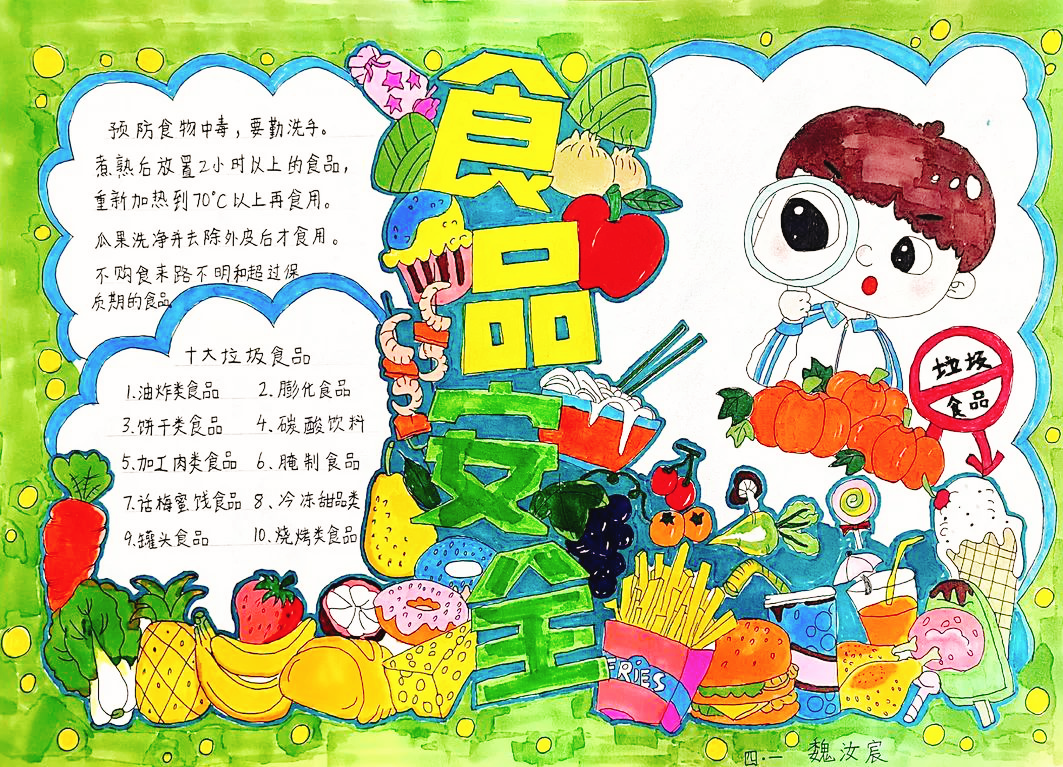 食品安全
预防食物中毒，要勤洗手。
煮熟后放置2小时以上的食品，
重新加热到70°C以上再食用。
瓜果洗净并去除外皮后才食用。
不购食来路不明和超过保
质期的食品
十大垃圾食品
1.油炸类食品 2.膨化食品
3.饼干类食品 4.碳酸饮料
5.加工肉类食品 6、腌制食品
7.话梅蜜饯食品 8、冷冻甜品类
9.罐头食品 10.烧烤类食品
垃圾
食品
FRIES
四·一 魏汝宸